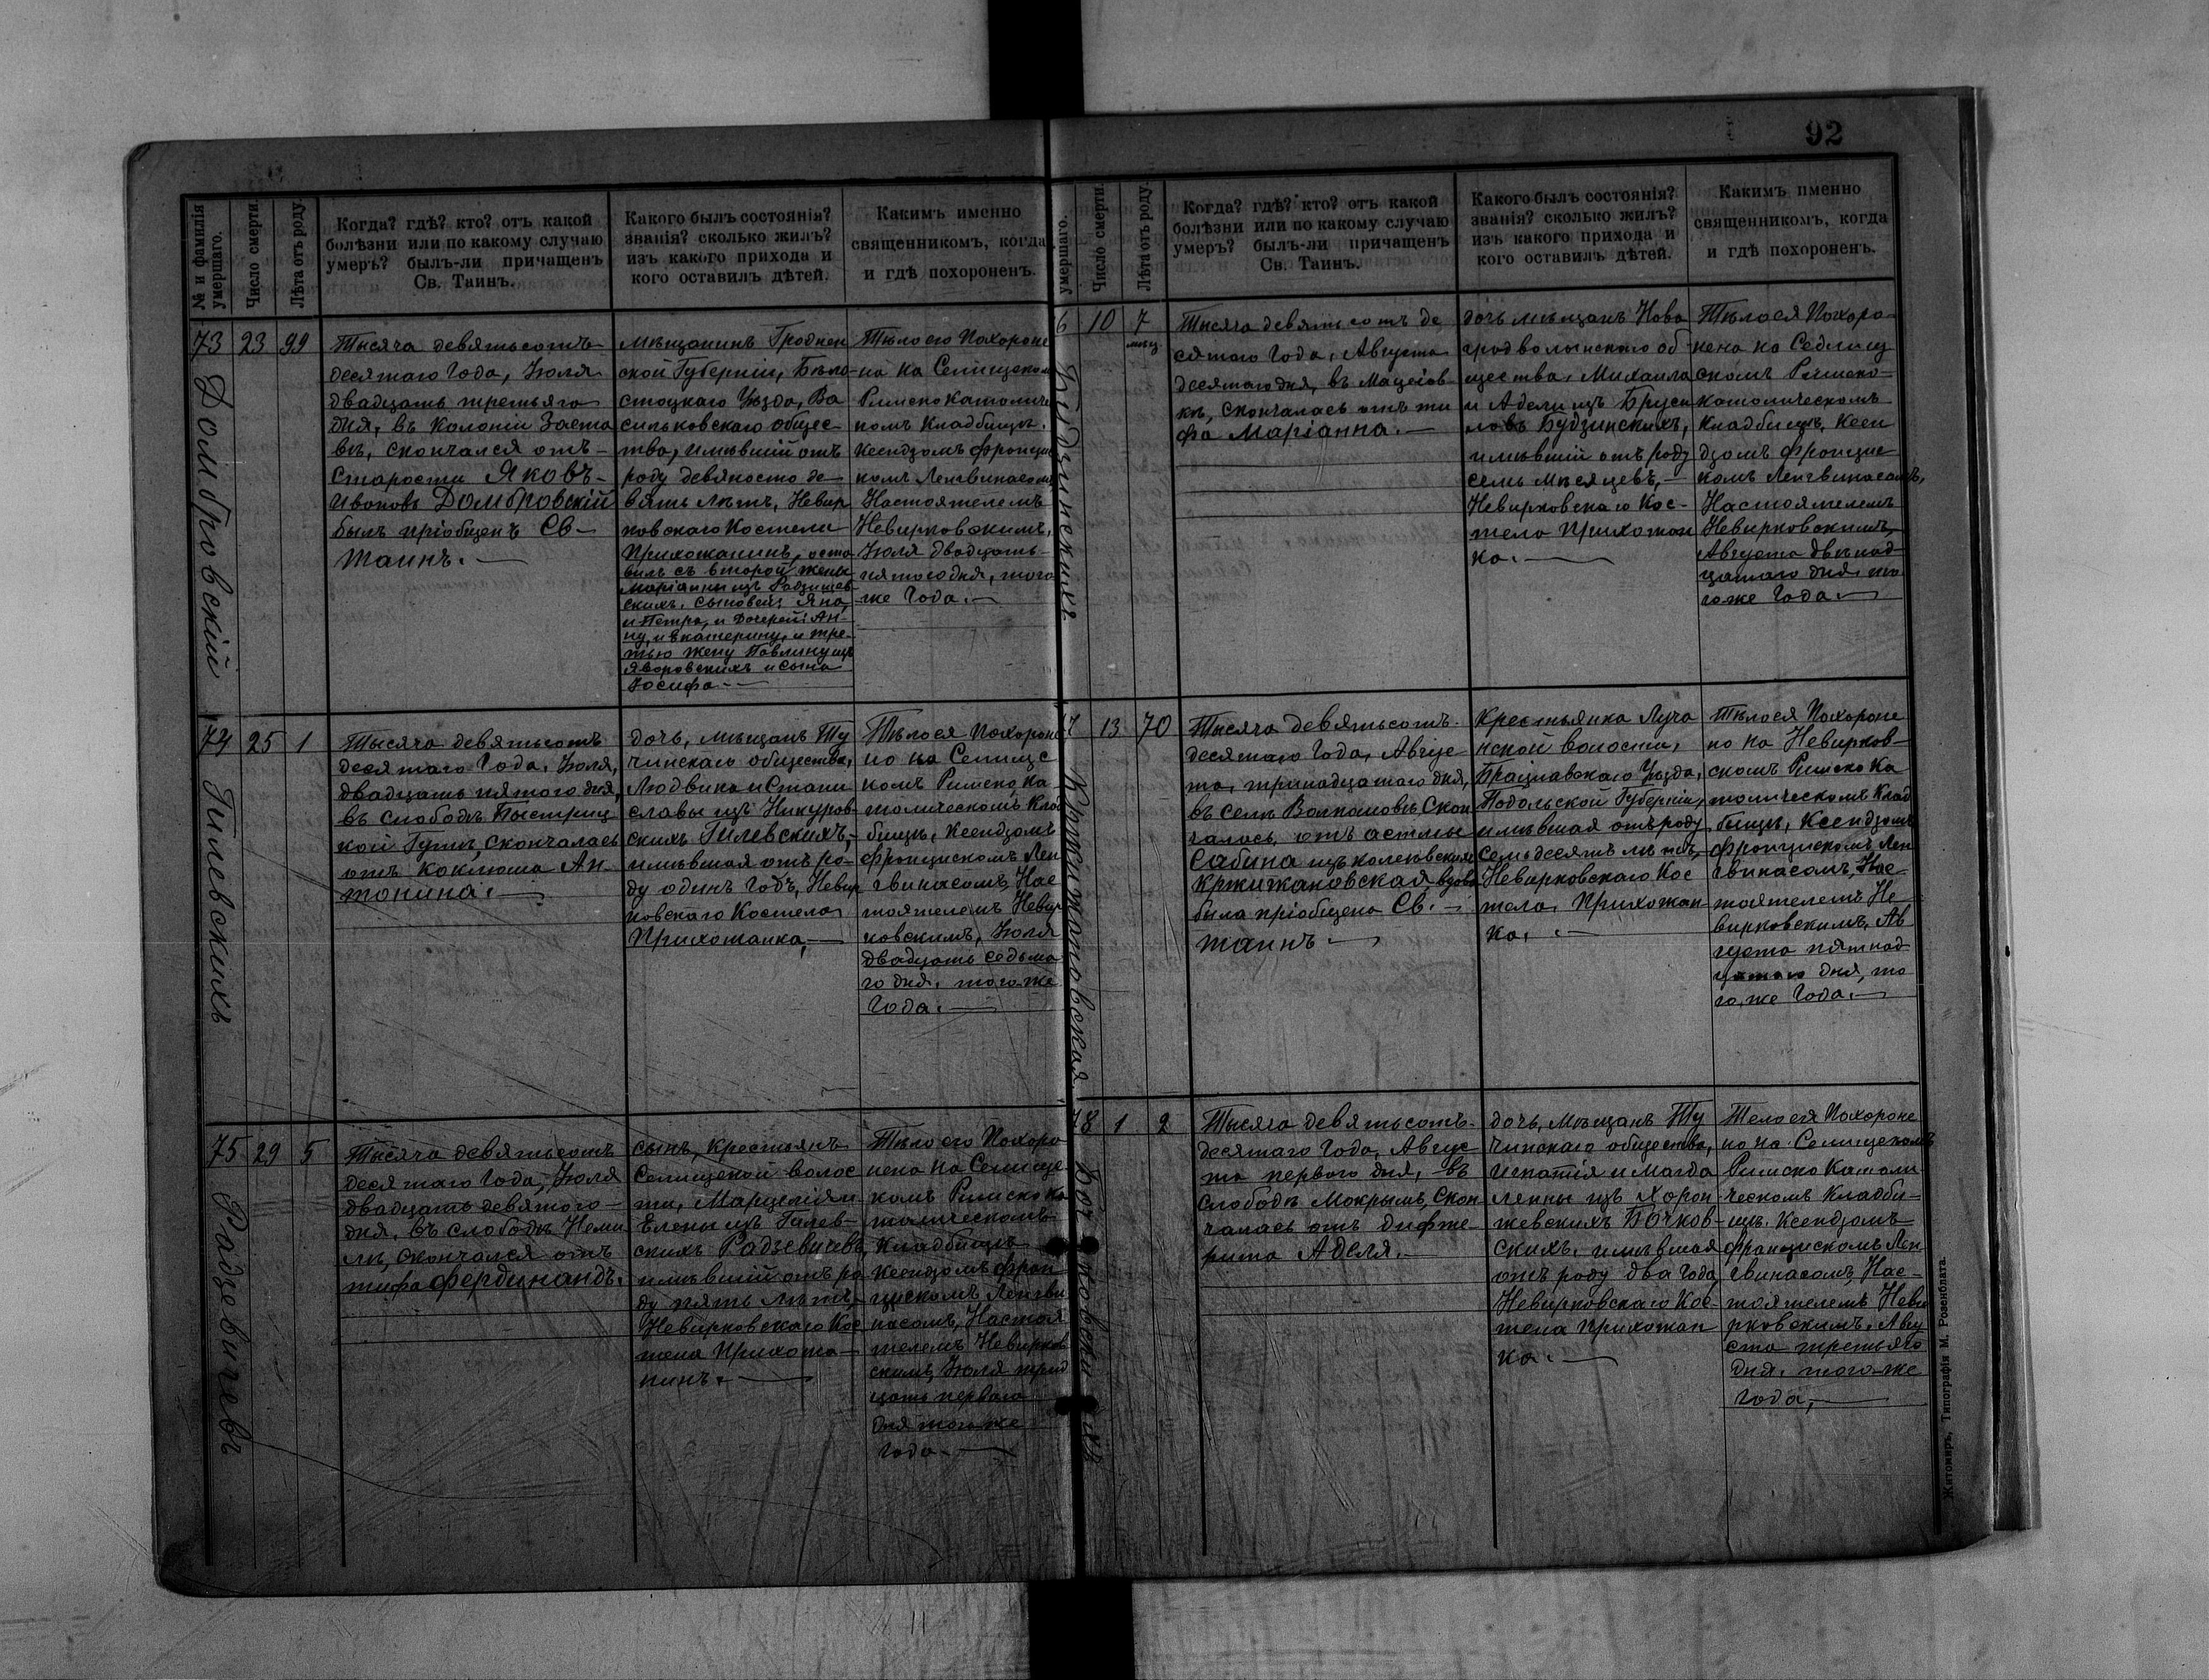 92
№ и фамилія
умершаго.
Число смерти.
Лѣта отъ роду.
Когда? гдѣ? кто? отъ какой
болѣзни или по какому случаю
умеръ? былъ-ли причащенъ
Св. Таинъ.
Какого былъ состоянія?
званія? сколько жилъ?
изъ какого прихода и
кого оставилъ дѣтей.
Каким­ъ именно
священникомъ, когда
и гдѣ похороненъ.
73
23
99
Домбровскій
Тысяча девятьсотъ
десятаго Года, Іюля
двадцать третьяго
дня, въ Колоніи Заста
вѣ, скончался отъ
старости Яковъ
Ивановъ Домбровскій
былъ пріобщенъ Св
Таинъ.
мѣщанинъ Гроднен
ской Губерніи, Бѣло
стоцкаго Уѣзда, Ва
сильковскаго общес
тва, имѣвшій отъ
роду девяносто де
вять лѣтъ, Невир
ковскаго Костела
Прихожанинъ, оста
вилъ съ второй жены
Маріанны изъ
скихъ, сыновей Яна,
и Петра, и дочерей Ан
ну, и Екатерину, и тре
тью жену Павлину изъ
Яворовскихъ и сына
Іосифа.
Тѣло его Похороне
но на Селищском
Римско Католичес
комъ Кладбищѣ,
Ксендзомъ Францис
комъ Ленгвинасомъ
Настоятелемъ
Невирковскимъ,
Іюля двадцать
пятого дня, того
же Года.
74
25
1
Гилевскихъ
Тысяча девятьсотъ
десятаго Года, Іюля,
двадцать пятого дня,
въ слободѣ Быстриц
кой Гутѣ, скончалась
отъ Коклюша Ан
тонина.
дочь, мѣщанъ Ту
чинскаго общества,
Людвика и Стани
славы изъ Никуров
скихъ Гилевскихъ,
имѣвшая отъ ро
ду одинъ Годъ, Невир
ковскаго Костела
Прихожанка,
Тѣло ея Похороне
но на Селищс
комъ Римско Ка
толическомъ Клад
бищѣ, Ксендзомъ
Францискомъ Лен
гвинасомъ, Нас
тоятелемъ Невир
ковскимъ, Іюля
двадцать седьма
го дня, того же
Года.
75
29
5
Радзевичевъ
Тысяча девятьсотъ
десятаго Года, Іюля
двадцать девятого
дня, въ слободѣ Неми
лѣ, скончался отъ
тифа Фердинандъ.
сынъ, Крестьянъ
Селищской волос
ти, Марцелія и
Елены изъ Гилев
скихъ Радзевичевъ,
имѣвшій отъ ро
ду пять лѣтъ,
Невирковскаго Кос
тела Прихожа
нинъ.
Тѣло его Похоро
нено на Селищс
комъ Римско Ка
толическомъ
Кладбищѣ
Ксендзомъ Фран
цискомъ Ленгви
насомъ, Настоя
телемъ Невирков
скимъ, Іюля трид
цать первого
дня того же
Года.
умершаго.
Число смерти.
Лѣта отъ роду.
Когда? гдѣ? кто? отъ какой
болѣзни или по какому случаю
умеръ? былъ-ли причащенъ
Св. Таинъ.
Какого былъ состоянія?
званія? сколько жилъ?
изъ какого прихода и
кого оставилъ дѣтей.
Какимъ именно
священникомъ, когда
и гдѣ похороненъ.
6
10
7
мѣсц
Будзинскихъ
Тысяча девятьсотъ де
сятого Года, Августа
десятаго дня, въ Мацеiов
кѣ, скончалась отъ ти
фа Маріанна.
дочь мѣщанъ Ново
градволынскаго об
щества, Михаила
и Адели изъ Бруси
ловъ Будзинскихъ,
имѣвшій отъ роду
семь мѣсяцевъ,
Невирковскаго Кос
тела Прихожан
ка.
Тѣло ея Похоро
нено на Седлищ
скомъ Римско
католическомъ
Кладбищѣ, Ксен
дзомъ Францис
комъ Ленгвинасомъ,
Настоятелемъ
Невирковскимъ,
Августа двѣнад
цатаго дня, то
го же Года.
7
13
70
Кржижановская
Тысяча девятьсотъ
десятаго Года, Авгус
та, тринадцатаго дня,
въ селѣ Волкошовѣ, Скон
чалась, отъ астмы
Сабина изъ
Кржижановская вдова
была пріобщена Св.
таинъ
Крестьянка Луча
нской волости,
Брацлавскаго Уѣзда,
Подольской Губерніи,
имѣвшая отъ роду
Семьдесятъ лѣтъ,
Невирковскаго Кос
тела, Прихожан
ка.
Тѣло ея Похороне
но на Невирков
скомъ Римско Ка
толическомъ Клад
бищѣ, Ксендзомъ
Францискомъ Лен
гвинасомъ, Нас
тоятелемъ Не
вирковскимъ, Ав
густа пятнад
цатаго дня, то
го, же Года.
78
1
2
Бочковскихъ
Тысяча девятьсотъ
десятаго Года, Авгус
та первого дня, въ
Слободѣ Мокрымъ, Скон
чалась отъ дифте
рита Аделя.
дочь, мѣщанъ Ту
чинскаго общества,
Игнатія и Магда
лены изъ Хорон
жевскихъ Бочков
скихъ, имѣвшая
отъ роду два Года,
Невирковскаго Кос
тела Прихожан
ка.
Тело ея Похороне
но на Селищскомъ
Римско Католи
ческомъ Кладби
щѣ, Ксендзомъ
Францискомъ Лен
гвинасомъ, Нас
тоятелемъ Неви
рковскимъ, Авгу
ста третьяго
дня, того-же
Года,
Житомиръ, Типографія М. Розенблата.